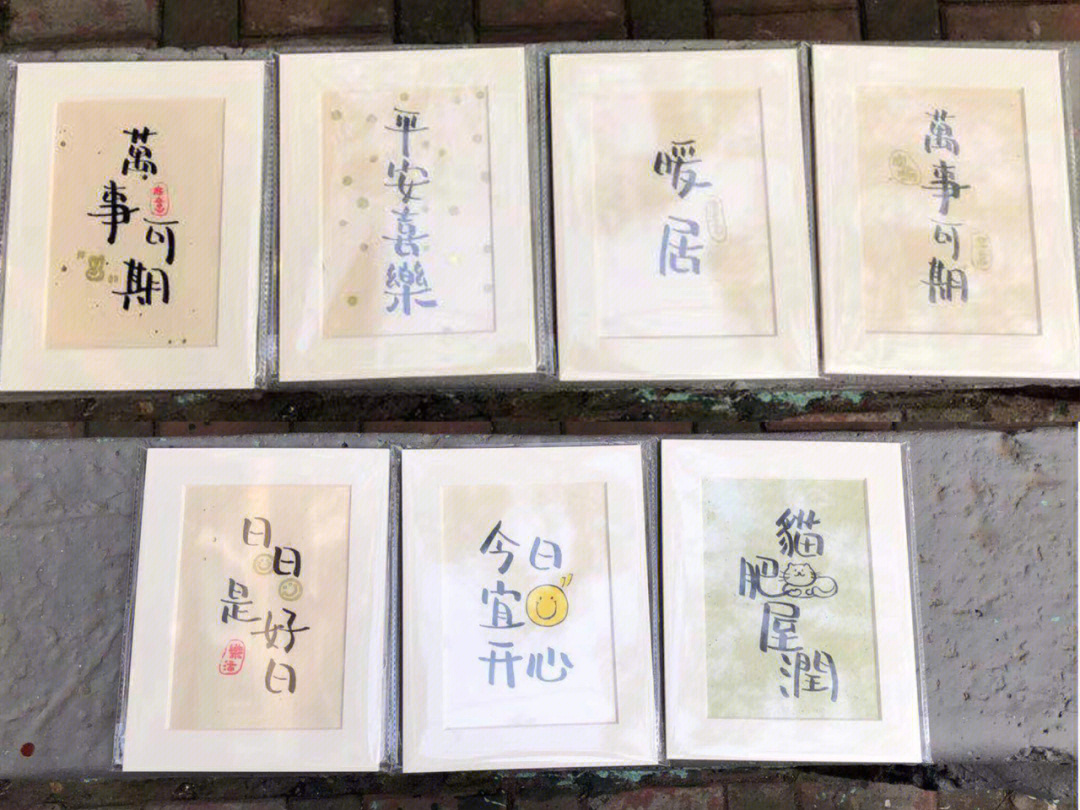 萬事可期
平安喜樂
暖居
萬事可期
日日是好日
今日宜开心
貓肥屋潤